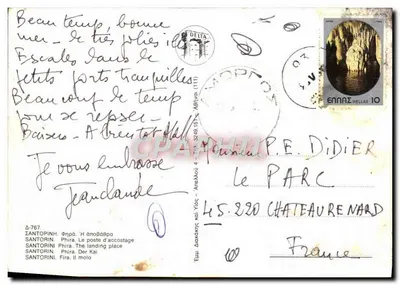 Beau temp, bonne
mer - de très jolies iles
Escales dans de
petits ports tranquilles
Beaucoup de temp
pour se reposer -
Baisers - A bientot
Je vous embrasse
Jeanclaude
DELTA
ΕΛΛΑΣ HELLAS 10
Monsieur P.E. DIDIER
Le PARC
45.220 CHATEAURENARD
France
Δ-767
ΣΑΝΤΟΡΙΝΗ. Φηρά. Ἡ ἀποβάθρα
SANTORIN. Phira. Le poste d'accostage
SANTORINI. Phira. The landing place
SANTORIN. Phira. Der Kai
SANTORINI. Fira. Il molo